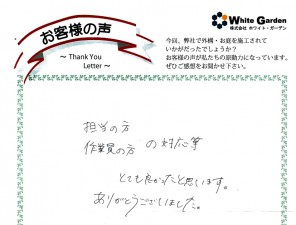 お客様の声
～ Thank You
Letter ～
White Garden
株式会社 ホワイト・ガーデン
今回、弊社で外構・お庭を施工されて
いかがだったでしょうか？
お客様の声が私たちの原動力になっています。
ぜひご感想をお聞かせ下さい。
担当の方
作業員の方 の対応等
とても良かったと思います。
ありがとうございました。